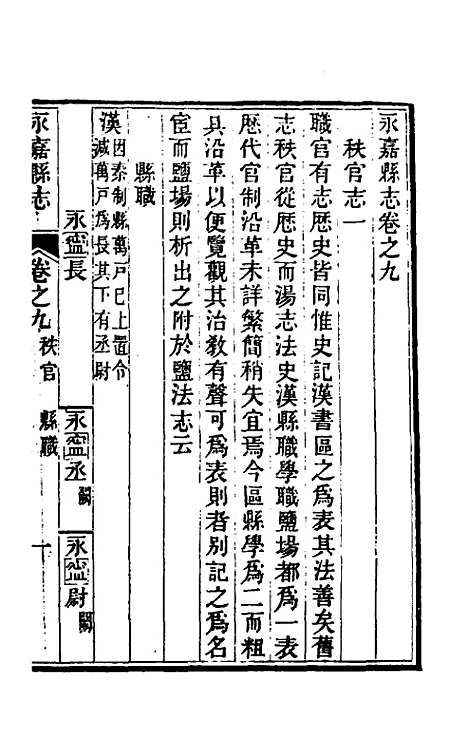 永嘉縣志卷之九
秩官志一
職官有志歷史皆同惟史記漢書區之爲表其法善矣舊
志秩官從歷史而湯志法史漢縣職學職鹽場都爲一表
歷代官制沿革未詳繁簡稍失宜焉今區縣學爲二而粗
具沿革以便覽觀其治教有聲可爲表則者別記之爲名
宦而鹽場則析出之附於鹽法志云
縣職
漢因秦制縣萬戸已上置令
減萬戸爲長其下有丞尉
永寍長 永寍丞闕 永寍尉闕
永嘉縣志 卷之九秩官 縣職 一